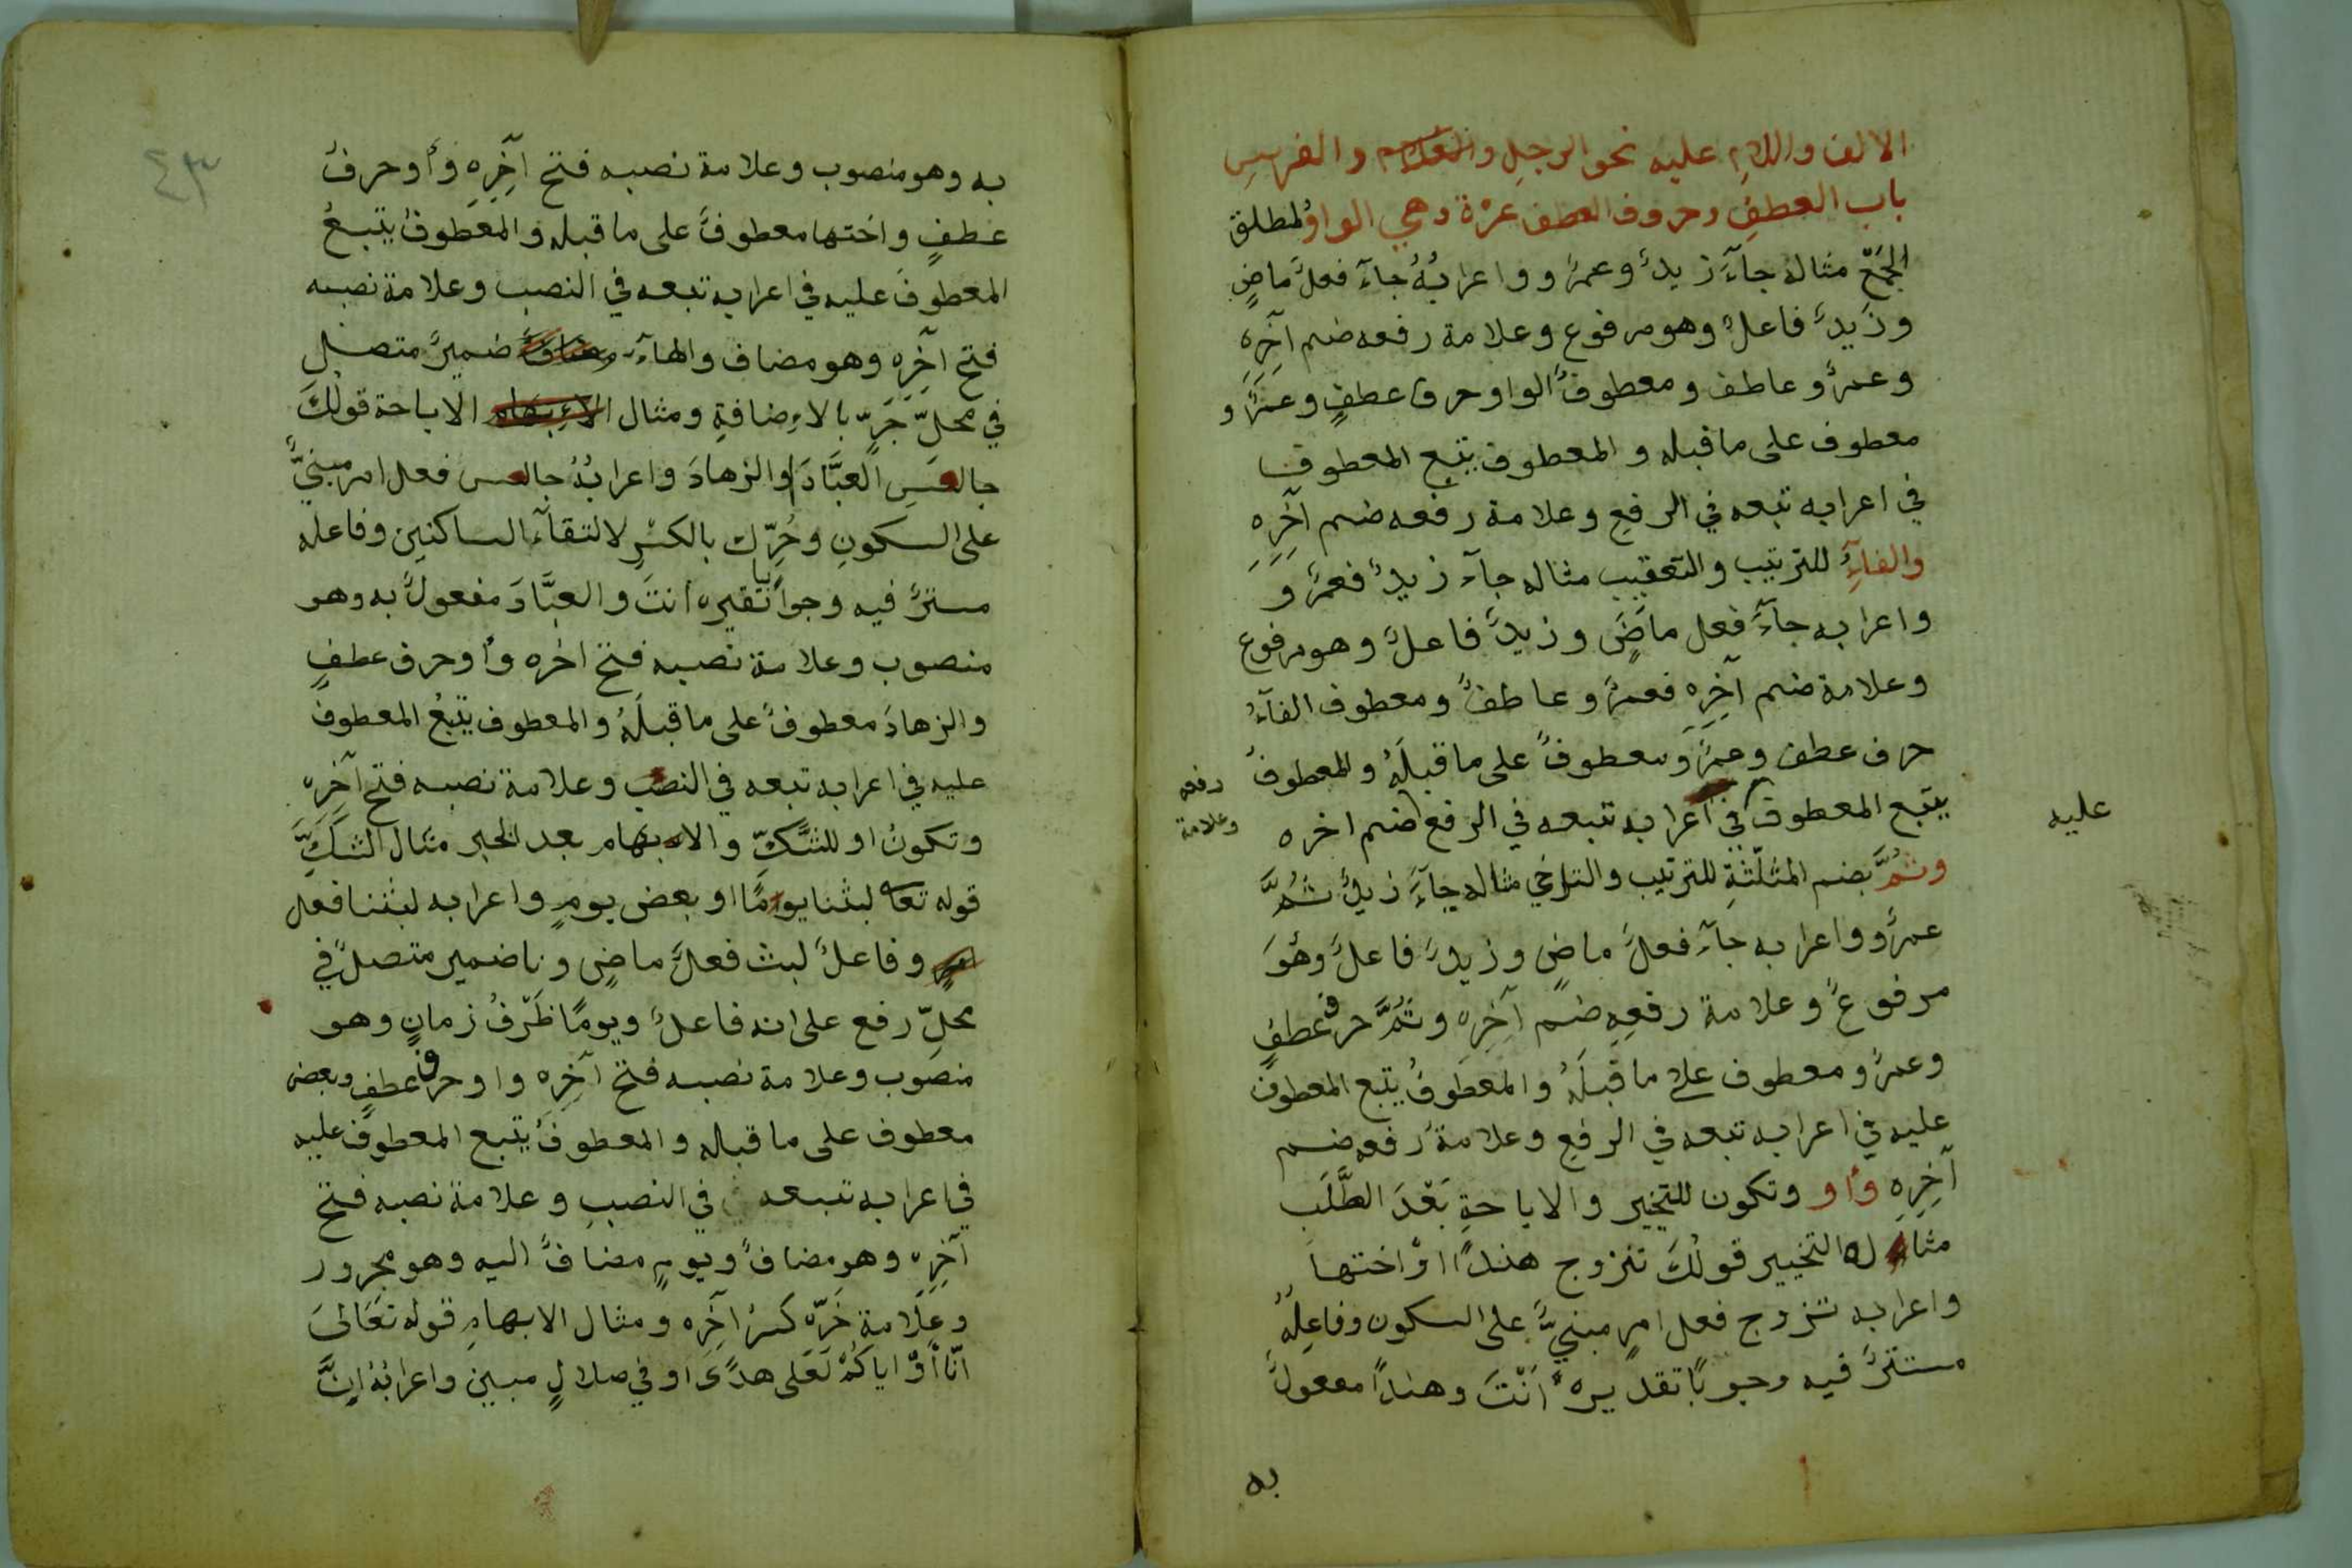 الالف واللامِ عليه نحو الرجلِ والغلام والفرسِ
باب العطفِ وحروف العطف عشرة وهي الواوُ لمطلق
الجَمْعِّ مثاله جآءَ زيدٌ وعمرٌو واعرابُهُ جآءَ فعلٌ ماضٍ
وزَيدٌ فاعلٌ وهو مرفوع وعلامة رفعه ضم آخِرِه
وعمرٌو عاطف ومعطوفٌ الواو حرف عطفٍ وعمرٌو
معطوف على ما قبله والمعطوف يتبع المعطوف
في اعرابه تبعه في الرفعِ وعلامة رفعه ضم آخِرِهِ
والفآءُ للترتيب والتعقيب مثاله جآءَ زيدٌ فعمرٌو
واعرابه جآءَ فعل ماضٍ وزيدٌ فاعلٌ وهو مرفوع
وعلامة ضم آخِرِه فعمرٌو عاطفٌ ومعطوف الفآءُ
حرف عطف وعمرٌو معطوفٌ على ما قبلَهُ والمعطوفُ
يتبع المعطوف في اعرابه تبعه في الرفع ضم اخره
عليه
رفعه
وعلامة
وثُمَّ بضم المثلّثةِ للترتيب والتراخي مثاله جآءَ زيدٌ ثُمَّ
عمرٌو واعرابه جآءَ فعلٌ ماضٍ وزيدٌ فاعلٌ وهُوَ
مرفوعٌ وعلامة رفعِهِ ضم آخِرِه وثُمَّ حرف عطفٍ
وعمرٌو معطوف على ما قبلَهُ والمعطوفُ يتبع المعطوف
عليه في اعرابه تبعه في الرفعِ وعلامة رفعه ضم
آخِرِهِ وأو وتكون للتخيير والاباحةِ بَعْدَ الطَّلَبِ
مثاله التخيير قولُكَ تزوج هندًا اوْ اختها
واعرابه تزوج فعل امرٍ مبنيٌّ على السكون وفاعِلُهُ
مستترٌ فيه وجوبًا تقديره أنْتَ وهندًا مفعولٌ
به
٤٣
به وهو منصوب وعلامة نصبه فتح آخِرِهِ وأو حرفُ
عطفٍ واختها معطوفٌ على ما قبله والمعطوفُ يتبعُ
المعطوفَ عليه في اعرابه تبعه في النصب وعلامة نصبه
فتح آخِرِه وهو مضاف والهآءُ ضميرٌ متصل
في محلِّ جَرٍّ بالاءِضافةِ ومثال الاباحة قولُكَ
جالسِ العبَّادَ او الزهادَ واعرابُهُ جالس فعل امر مبنيٌّ
على السكونِ وحُرِّك بالكسْرِ لالتقآءِ الساكنين وفاعله
مستترٌ فيه وجوبًا تقيره أنتَ والعبَّادَ مفعولٌ به وهو
منصوب وعلامة نصبه فتح اخره وأو حرف عطفٍ
والزهادَ معطوفٌ على ما قبلَهُ والمعطوف يتبعُ المعطوف
عليه في اعرابه تبعه في النصب وعلامة نصبه فتح آخِرِه
وتكونُ او للشَّكِّ والابهام بعد الخبر مثال الشَّكِّ
قوله تعا لبثنا يومًا او بعض يومٍ واعرابه لبثنا فعل
وفاعلٌ لبث فعلٌ ماضٍ ونا ضمير متصلٌ في
محلِّ رفع على انه فاعلٌ ويومًا ظَرْفُ زمانٍ وهو
منصوب وعلامة نصبه فتح آخِرِه واو حرف عطفٍ وبعض
معطوف على ما قباله والمعطوفُ يتبع المعطوف عليه
في اعرابه تبعه في النصبِ وعلامة نصبه فتح
آخِرِه وهو مضافٌ ويومٍ مضافٌ اليه وهو مجرور
وعلامة جَرِّه كسرُ آخِرِه ومثال الابهامِ قوله تَعَالىَ
انّا أوْ اياكُمْ لَعَلى هدًى او في ضلالٍ مبين واعرابُهُ انَّ